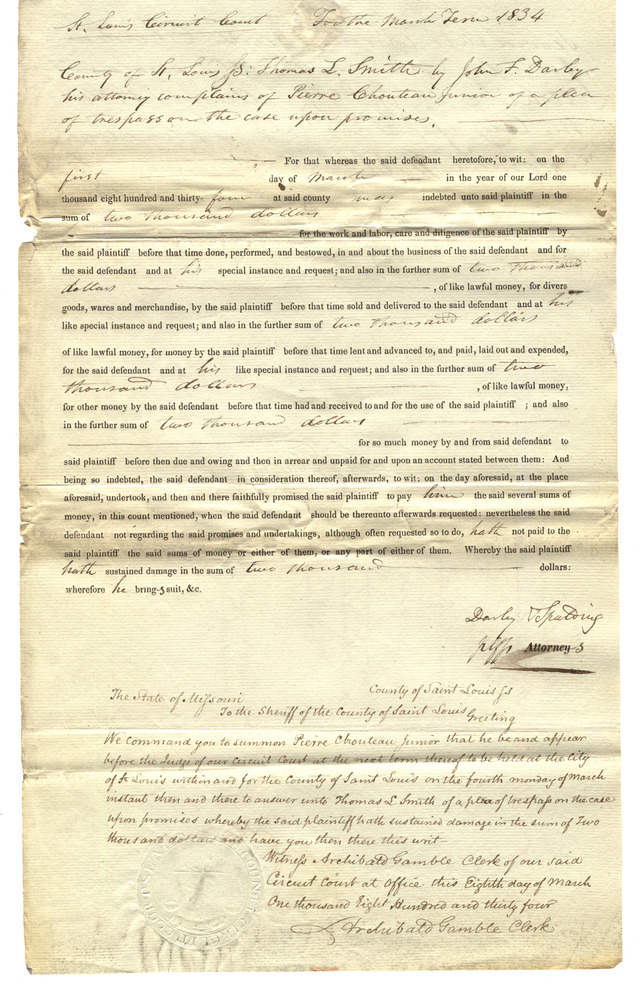 St. Louis Circuit Court For the March Term 1834
County of St. Louis ss: Thomas L. Smith by John F. Darby
his attorney complains of Pierre Chouteau junior of a plea
of trespass on the case upon promises.
For that whereas the said defendant heretofore, to wit: on the
first day of March in the year of our Lord one
thousand eight hundred and thirty-four at said county was indebted unto said plaintiff in the
sum of two thousand dollars
for the work and labor, care and diligence of the said plaintiff by
the said plaintiff before that time done, performed, and bestowed, in and about the business of the said defendant and for
the said defendant and at his special instance and request; and also in the further sum of two thousand
dollars , of like lawful money, for divers
goods, wares and merchandise, by the said plaintiff before that time sold and delivered to the said defendant and at his
like special instance and request; and also in the further sum of two thousand dollars
of like lawful money, for money by the said plaintiff before that time lent and advanced to, and paid, laid out and expended,
for the said defendant and at his like special instance and request; and also in the further sum of two
thousand dollars , of like lawful money,
for other money by the said defendant before that time had and received to and for the use of the said plaintiff ; and also
in the further sum of two thousand dollars
for so much money by and from said defendant to
said plaintiff before then due and owing and then in arrear and unpaid for and upon an account stated between them: And
being so indebted, the said defendant in consideration thereof, afterwards, to wit: on the day aforesaid, at the place
aforesaid, undertook, and then and there faithfully promised the said plaintiff to pay him the said several sums of
money, in this count mentioned, when the said defendant should be thereunto afterwards requested: nevertheless the said
defendant not regarding the said promises and undertakings, although often requested so to do, hath not paid to the
said plaintiff the said sums of money or either of them, or any part of either of them. Whereby the said plaintiff
hath sustained damage in the sum of two thousand dollars:
wherefore he bring-s suit, &c.
Darby & Spalding
plffs Attorney-s
The State of Missouri County of Saint Louis ss
To the Sheriff of the County of Saint Louis Greeting
We command you to summon Pierre Chouteau Junior that he be and appear
before the Judge of our Circuit Court at the next term thereof to be held at the City
of St Louis within and for the County of Saint Louis on the fourth monday of March
instant then and there to answer unto Thomas L Smith of a plea of trespass on the case
upon promises whereby the said plaintiff hath sustained damage in the sum of Two
thousand dollars and have you then there this writ
Witness Archibald Gamble Clerk of our said
Circuit Court at Office this Eighth day of March
One thousand Eight Hundred and thirty four
Archibald Gamble Clerk